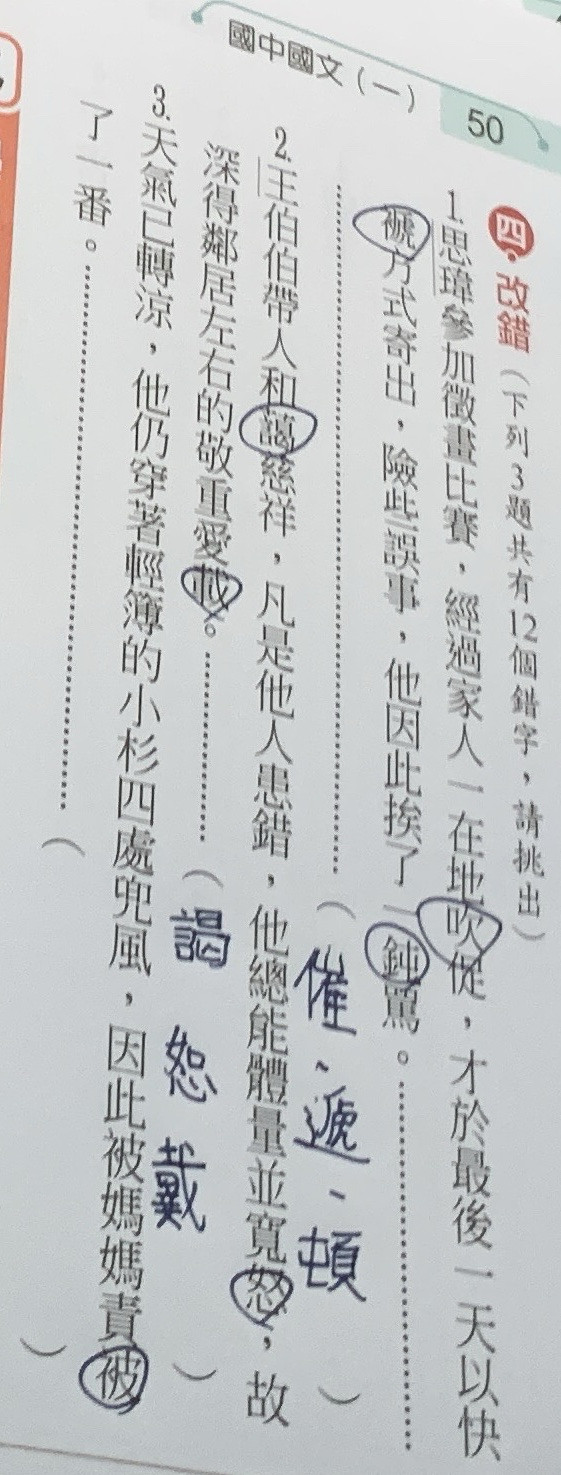 國中國文(一) 50
四、改錯(下列3題共有12個錯字,請挑出)
1.思瑋參加徵畫比賽,經過家人一在地吹促,才於最後一天以快
褫方式寄出,險些誤事,他因此挨了一鈍罵。
(催、遞、頓)
2.王伯伯帶人和藹慈祥,凡是他人患錯,他總能體量並寬怒,故
深得鄰居左右的敬重愛載。(謁 恕 戴)
3.天氣已轉涼,他仍穿著輕簿的小杉四處兜風,因此被媽媽責被
了一番。()